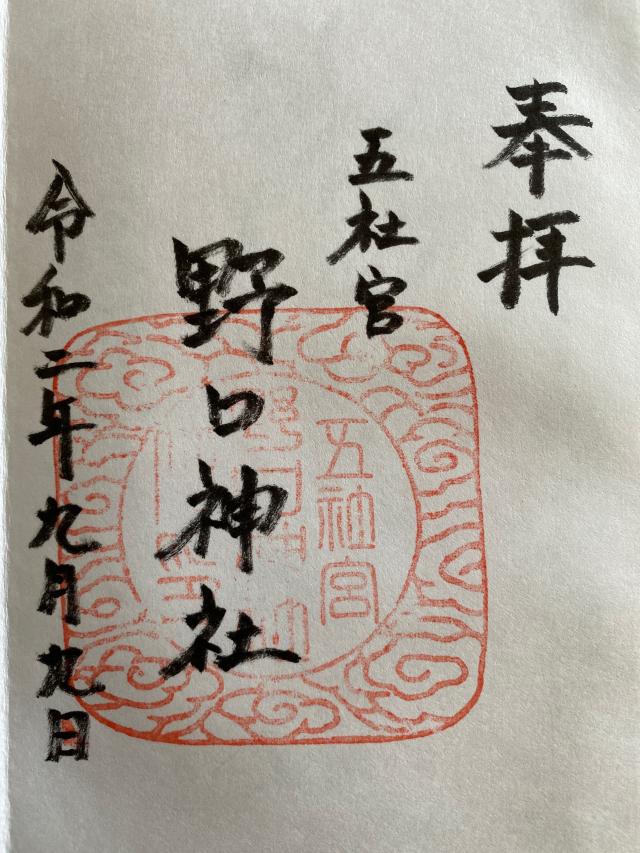 奉拝
五社宮
野口神社
令和二年九月九日
五社宮